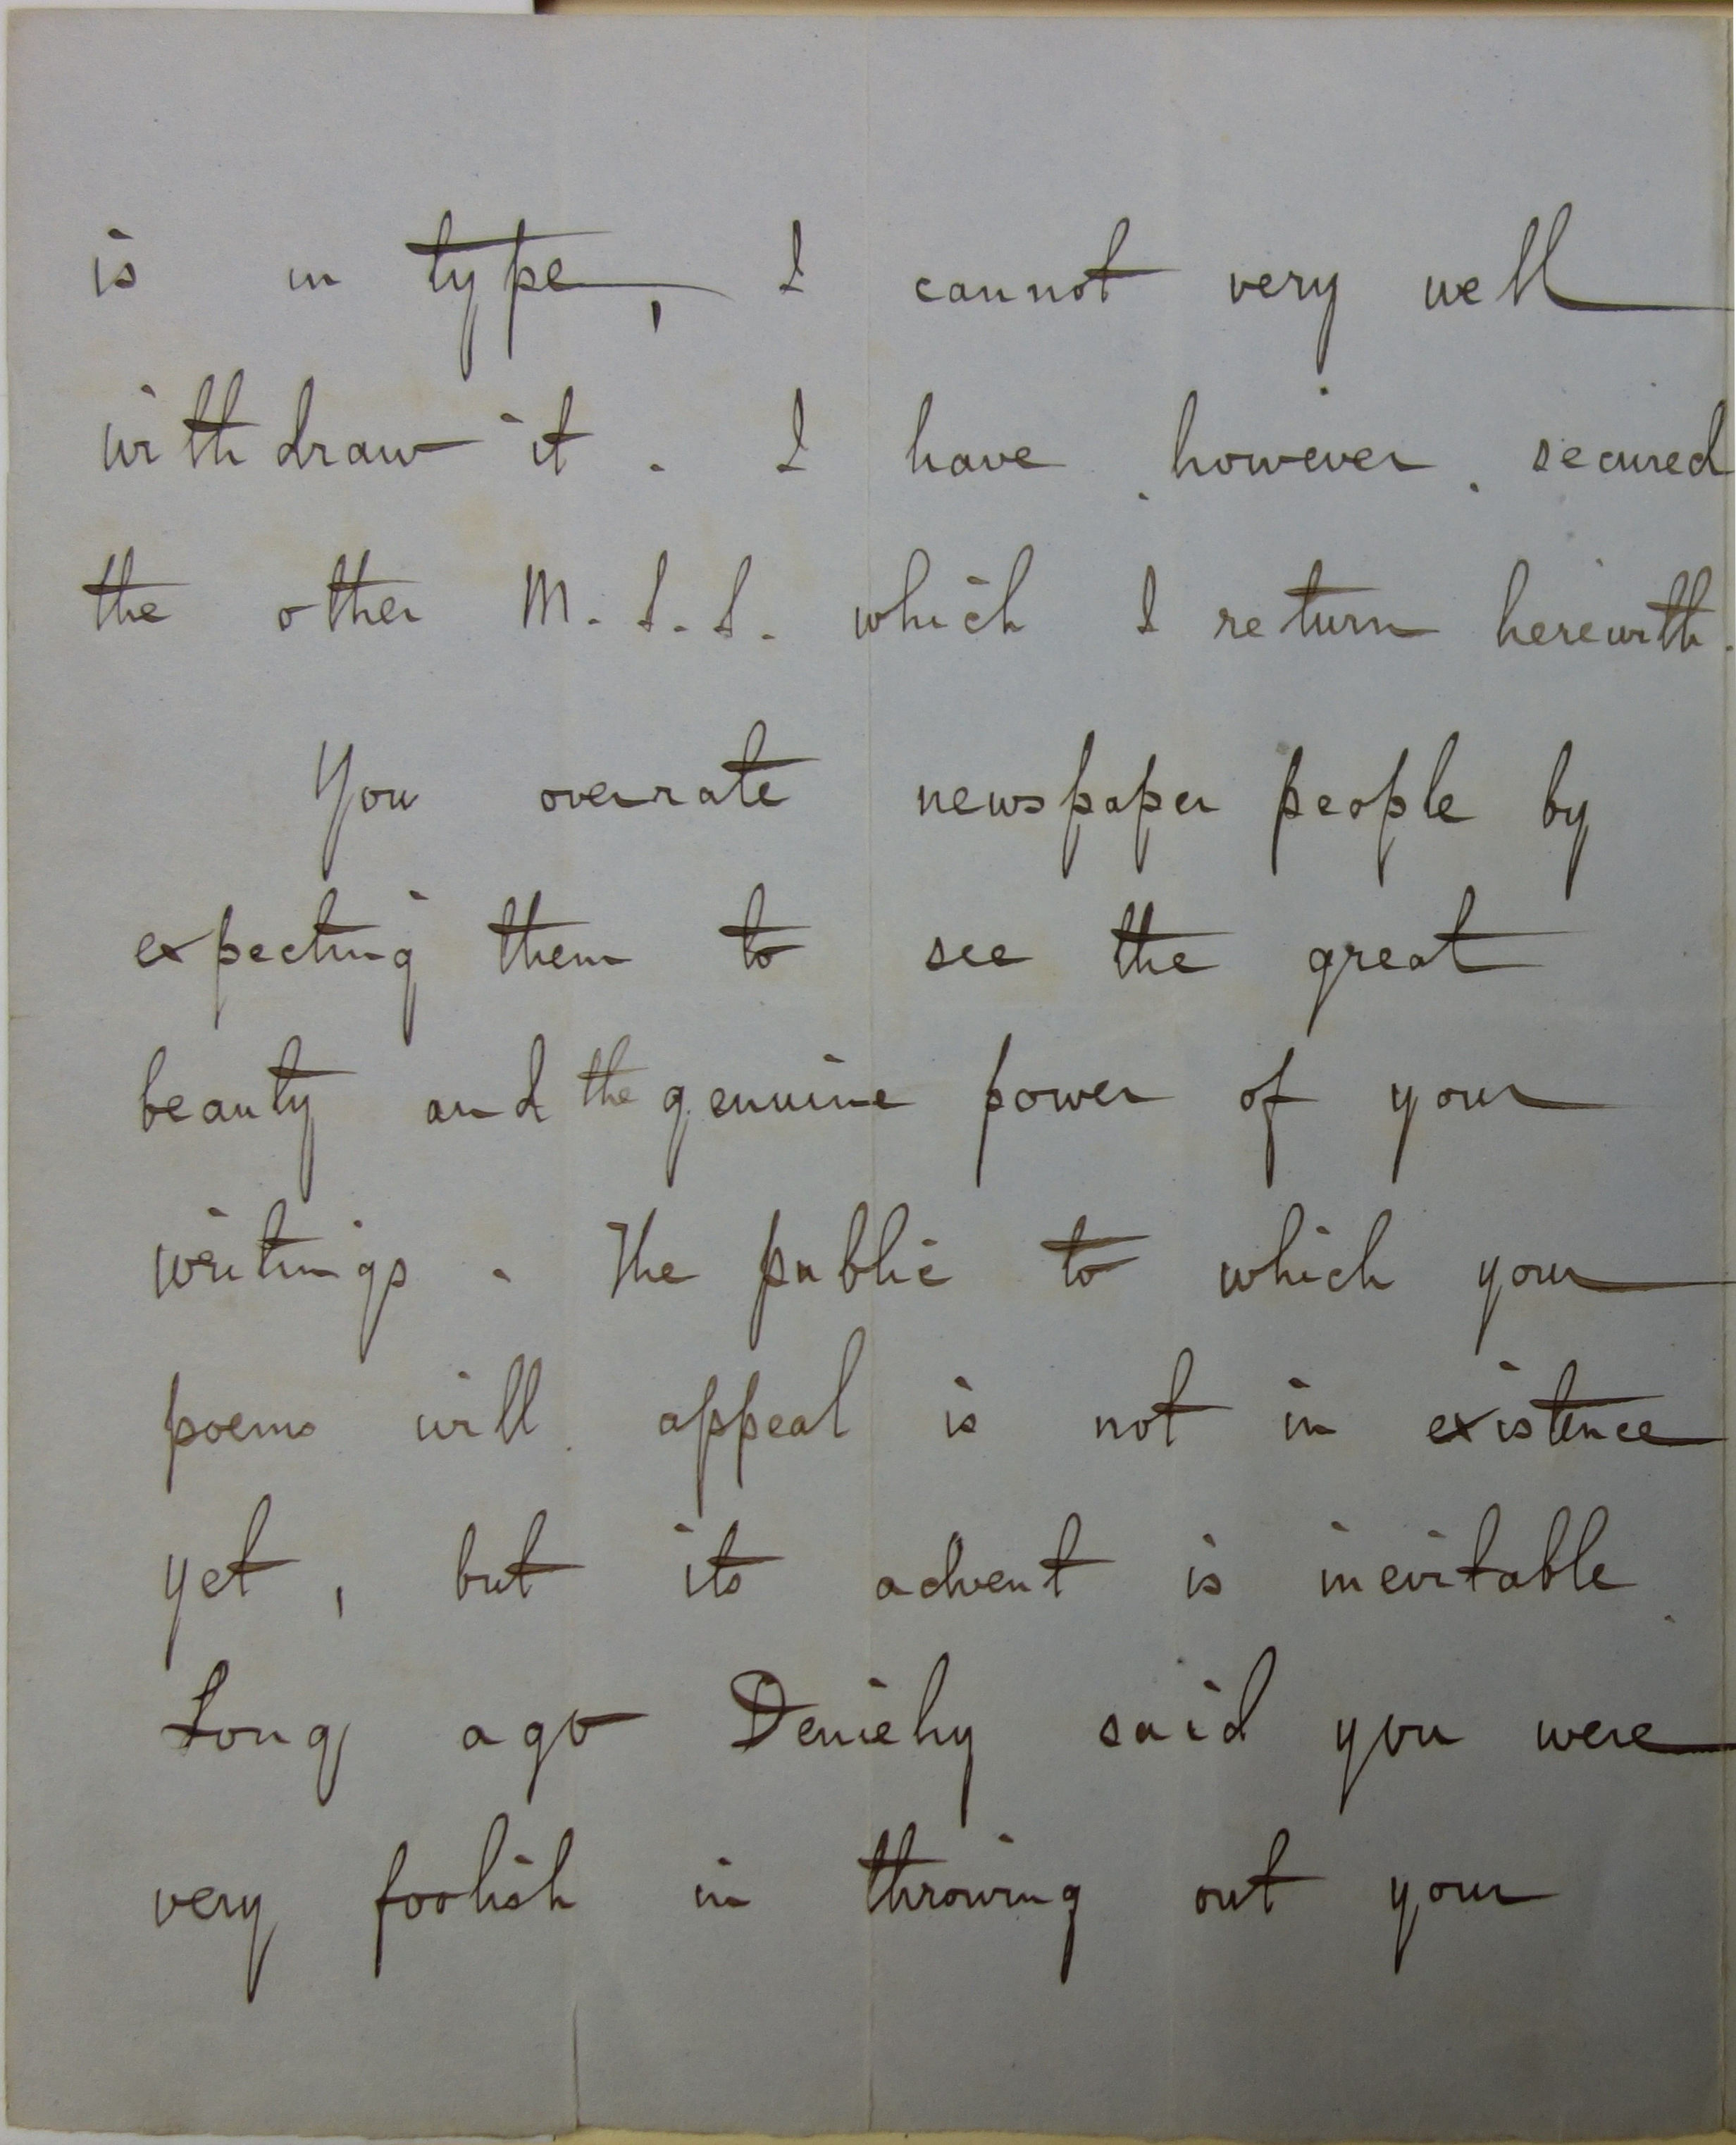 is in type, I cannot very well
withdraw it. I have, however, secured
the other M.S.S. which I return herewith.
You overrate newspaper people by
expecting them to see the great
beauty and the genuine power of your
writings. The public to which your
poems will appeal is not in existence
yet, but its advent is inevitable.
Long ago Deniehy said you were
very foolish in throwing out your